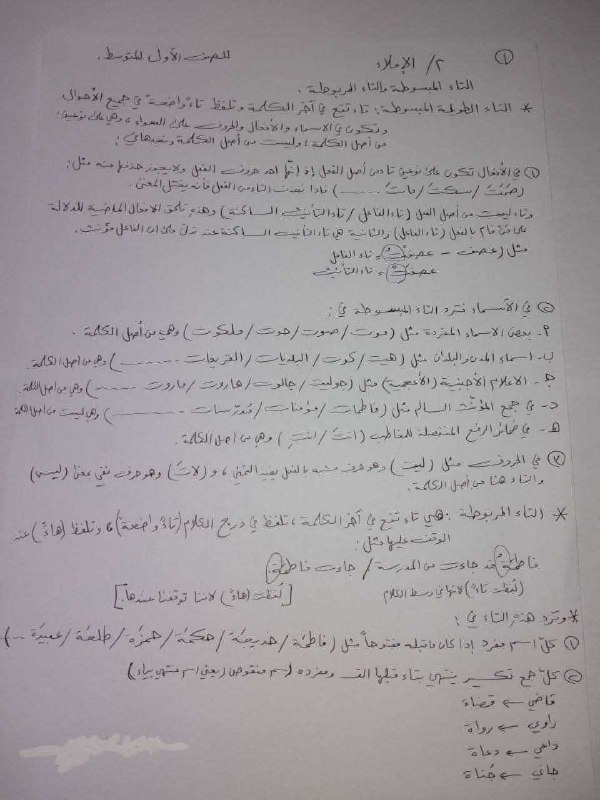 ١
للصف الأول المتوسط.
٢/ الإملاء
التاء المبسوطة والتاء المربوطة.
* التاء الطويلة المبسوطة: تاء تقع في آخر الكلمة وتلفظ تاءً واضحةً في جميع الأحوال
وتكون في الاسماء والأفعال والحروف على السواء، وهي على نوعين:
من أصل الكلمة، وليست من أصل الكلمة
١) في الأفعال تكون على نوعين تاء من أصل الفعل إذ إنّها أحد حروف الفعل ولا يجوز حذفها منه مثل:
(صَمَتَ / سكتَ / ماتَ ......) فإذا حذفت التاء من الفعل فأنه يختل المعنى.
وتاء ليست من أصل الفعل (تاء الفاعل / تاء التأنيث الساكنة) وهذه تلحق الافعال الماضية للدلالة
على مَنْ قام بالفعل (تاء الفاعل) والثانية هي تاء التأنيث الساكنة عند تدل على ان الفاعل مؤنث.
مثل (عصف - عصفتُ) = تاء الفاعل
عصفتْ = تاء التأنيث
٢) في الأسماء فترد التاء المبسوطة في:
أ- بعض الاسماء المفردة مثل (موت / صوت / حوت / ملكوت) وهي من أصل الكلمة.
ب- اسماء المدن والبلدان مثل (هيت / كوت / البلديات / الغزيجات ......) وهي من اصل الكلمة.
ج- الاعلام الاجنبية (الأعجمية) مثل (جوليت / جالوت / هاروت / ماروت ......) وهي من اصل الكلمة
د- في جمع المؤنث السالم مثل (فاطمات / مؤمنات / مُدرّسات ......) وهي ليست من اصل الكلمة
هـ- في ضمائر الرفع المنفصلة للمخاطب (انتَ / انتِ) وهي من أصل الكلمة.
٣) في الحروف مثل (ليت) وهو حرف مشبه بالفعل يفيد التمني، و (لاتَ) وهو حرف نفي بمعنى (ليس)
والتاء هنا من أصل الكلمة.
* التاء المربوطة: هي تاء تقع في آخر الكلمة، تلفظ في درج الكلام (تاءً واضحةً) ، وتلفظ (هاءً) عند
الوقف عليها مثل:
فاطمةُ قد جاءت من المدرسة / جاءت فاطمة.
(لُفظت تاءً) لانها في وسط الكلام [لُفظت (هاءً) لاننا توقفنا عندها.]
* وترد هذه التاء في:
١) كلّ اسم مفرد إذا كان ماقبله مفتوحاً مثل (فاطمَة / خديجَة / حكمَة / حمزَة / طلحَة / عبيدَة ...)
٢) كلّ جمع تكسير ينتهي بتاء قبلها الف ومفرده (اسم منقوص (يعني اسم منتهي بياء)
قاضي ← قضاة
راوي ← رواة
داعي ← دعاة
جاني ← جُناة